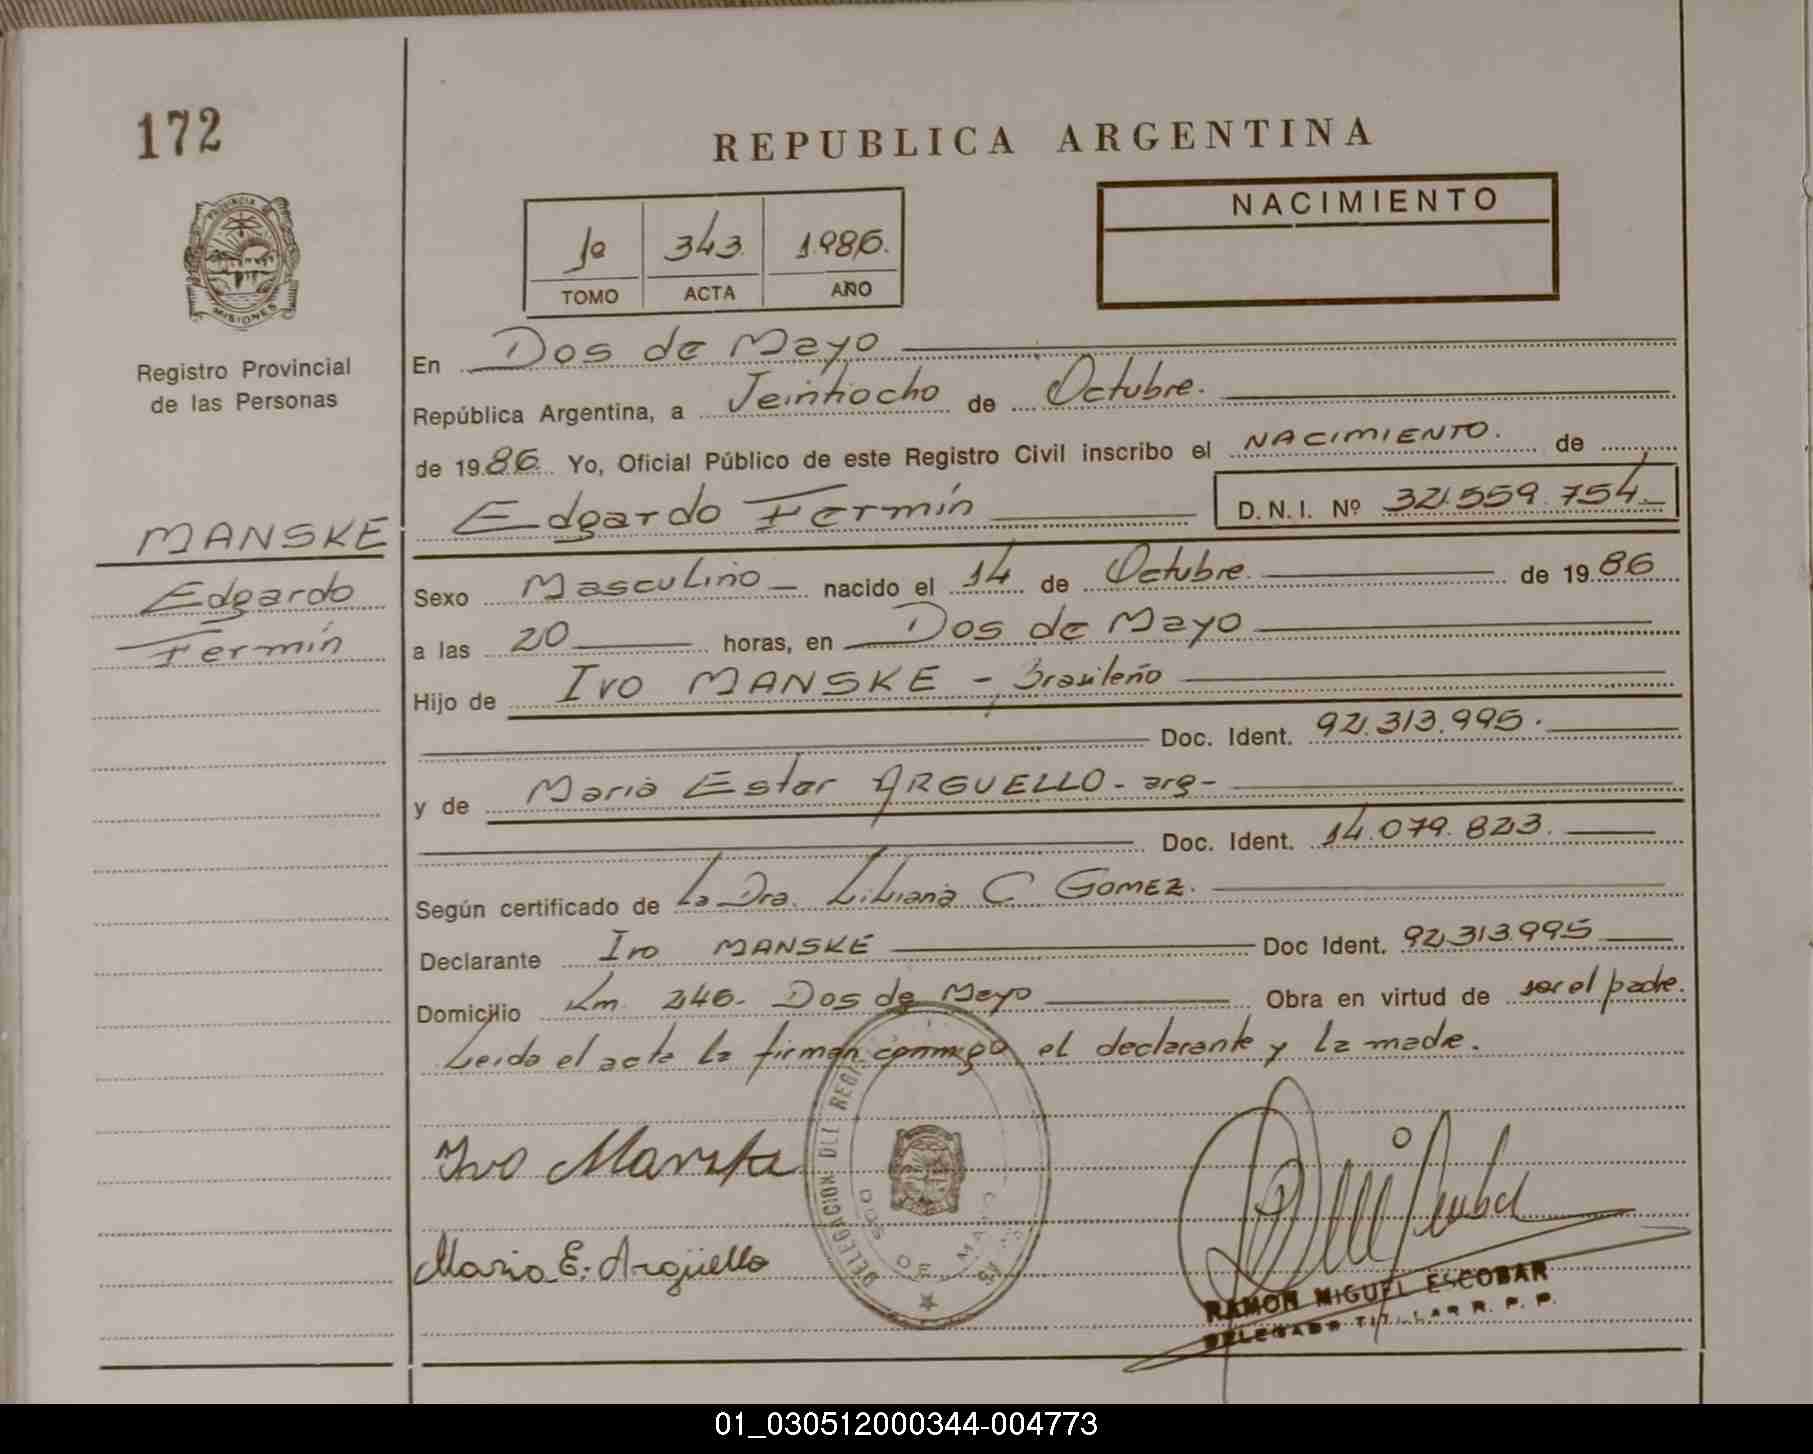 172
REPUBLICA ARGENTINA
NACIMIENTO
1º 343 1986.
TOMO ACTA AÑO
PROVINCIA DE MISIONES
Registro Provincial
de las Personas
En Dos de Mayo
República Argentina, a Veintiocho de Octubre.
de 1986. Yo, Oficial Público de este Registro Civil inscribo el NACIMIENTO. de
MANSKE Edgardo Fermín D.N.I. Nº 32.559.754
Edgardo
Fermín
Sexo Masculino nacido el 14 de Octubre. de 1986
a las 20 horas, en Dos de Mayo
Hijo de Ivo MANSKE - Brasileño
Doc. Ident. 92.313.995.
y de Maria Ester ARGUELLO - arg-
Doc. Ident. 14.079.823.
Según certificado de La Dra. Liliana C. GOMEZ.
Declarante Ivo MANSKE Doc Ident. 92.313.995
Domicilio Km. 246. Dos de Mayo Obra en virtud de ser el padre.
Leída el acta la firman conmigo el declarante y la madre.
Ivo Manske
Maria E. Argüello
DELEGACION DEL REGI
DOS DE MAYO
RAMON MIGUEL ESCOBAR
DELEGADO TITULAR R. P. P.
01_030512000344-004773